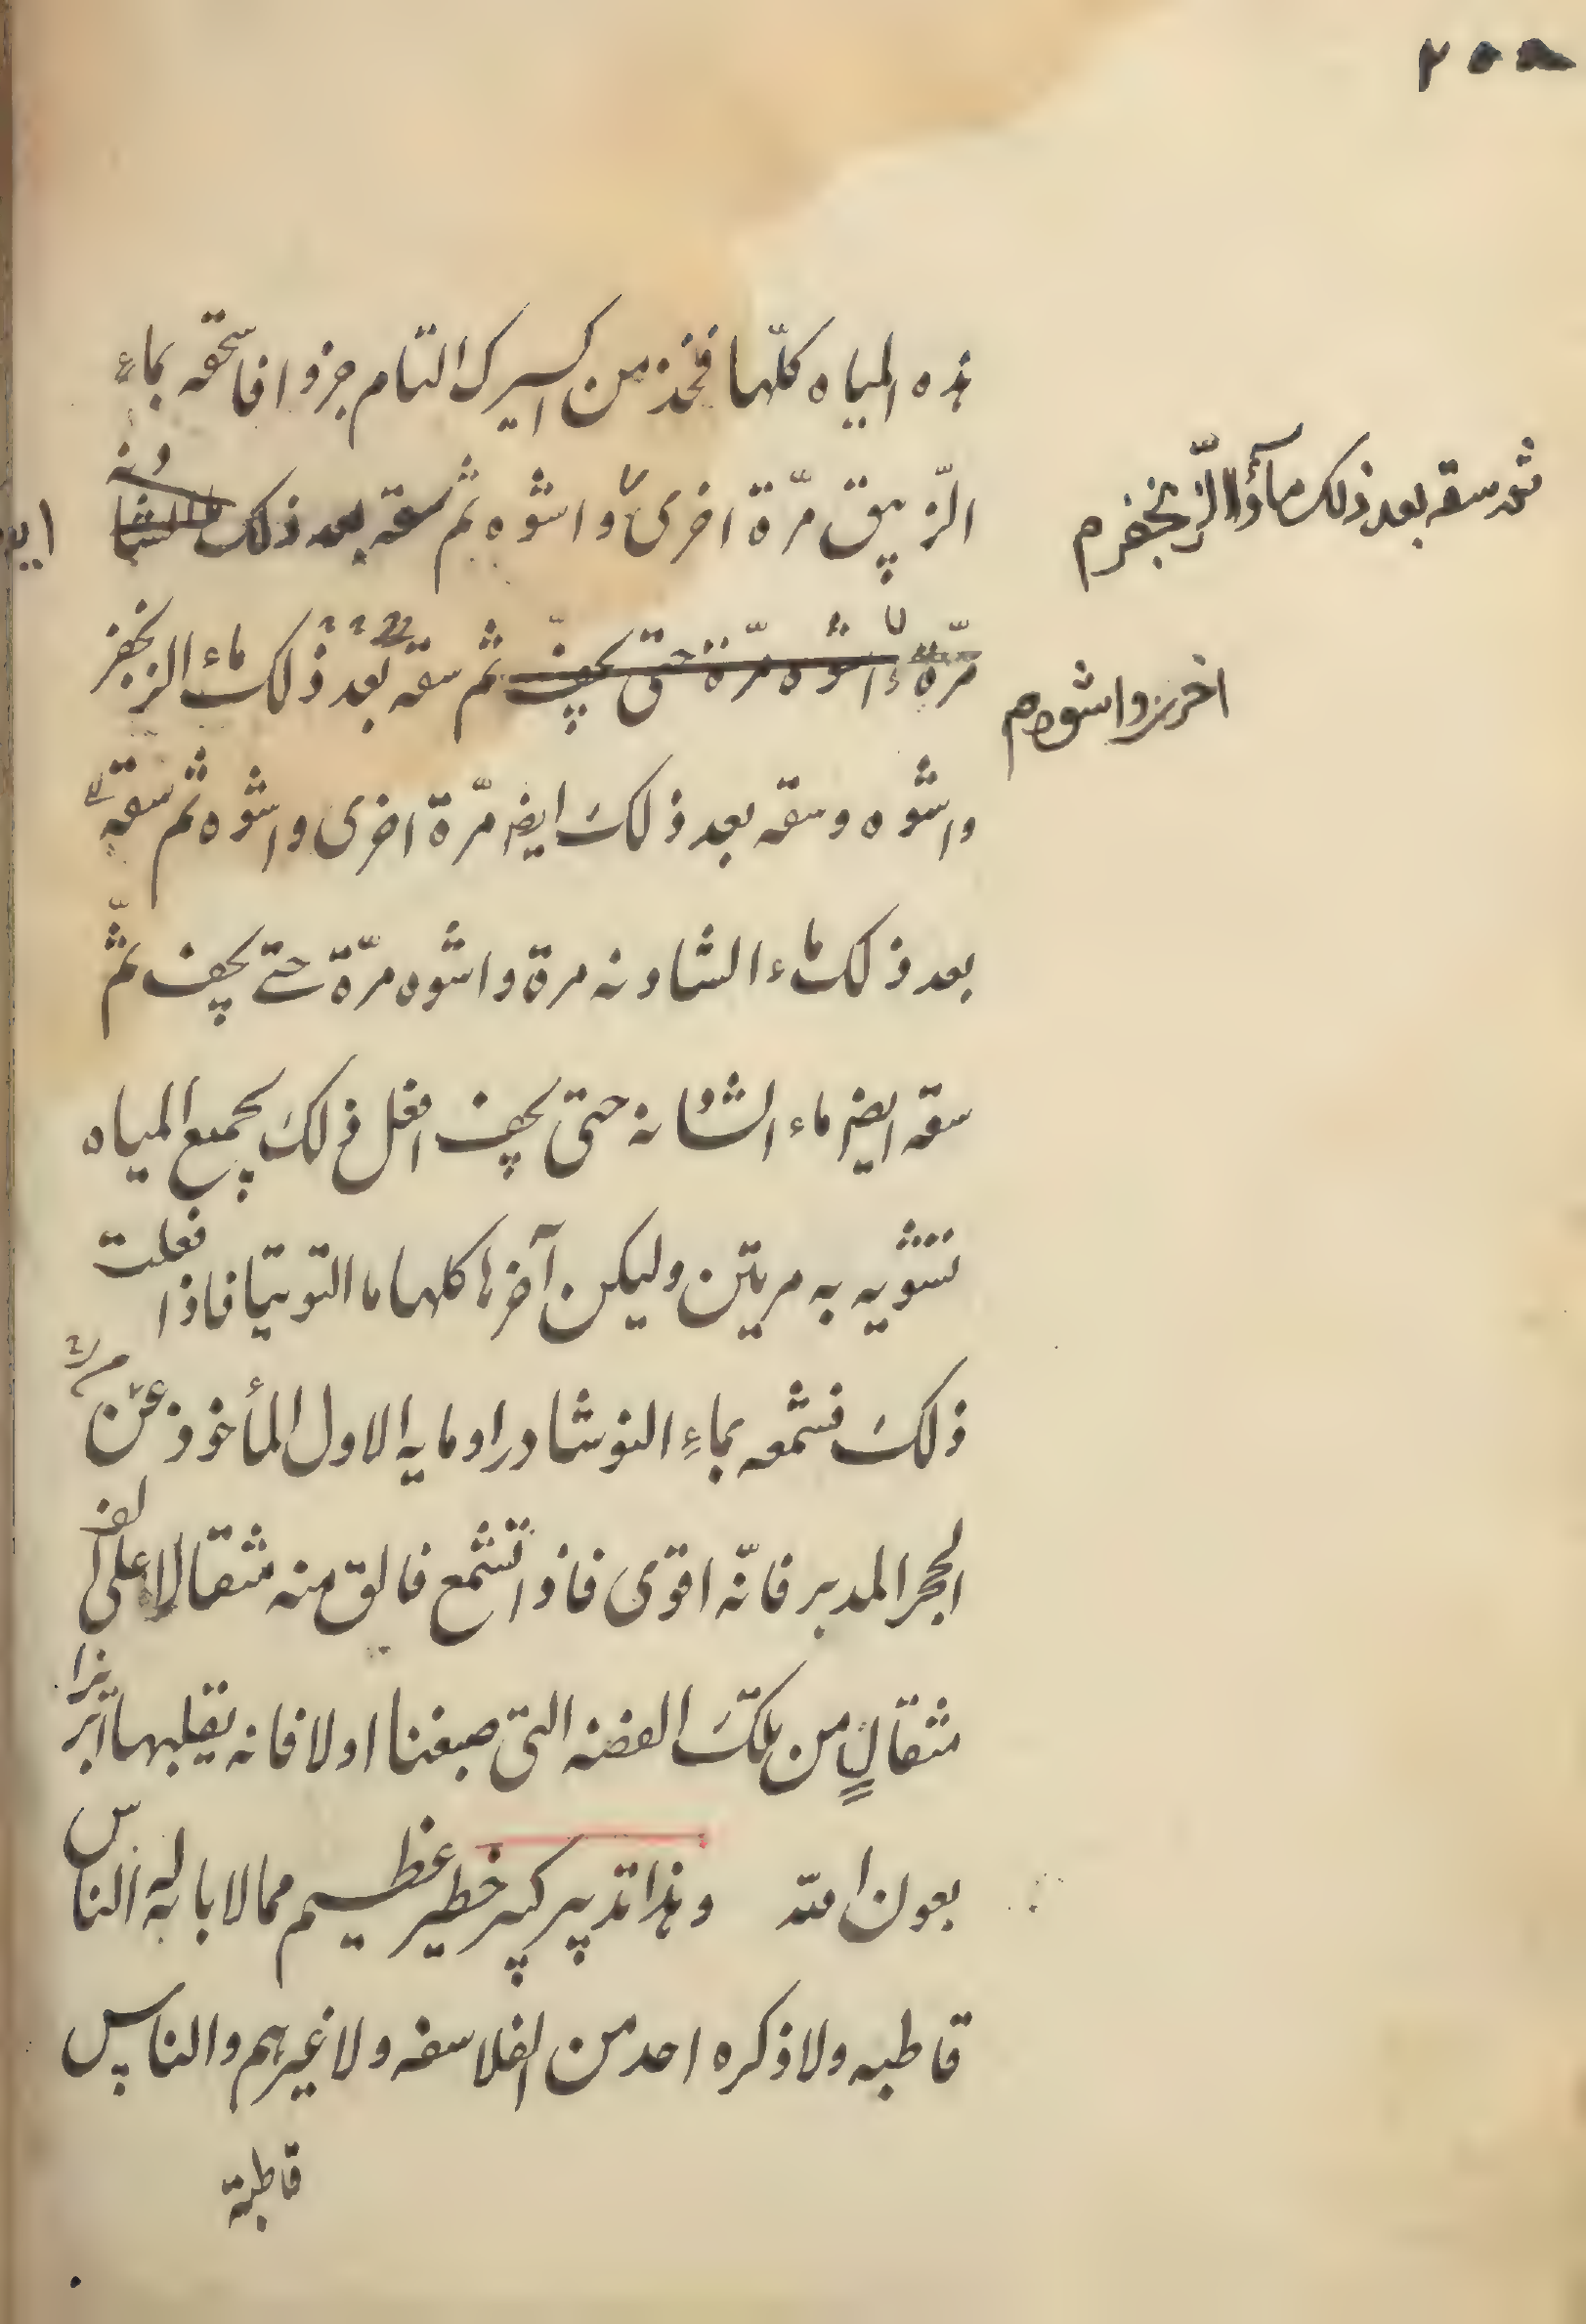 ٢٥٥
هذه المياه كلّها فخذ من اكسيرك التام جزوا فاسحقه بماءِ
الزّيبق مرّة اخرى واشوه ثم سقه بعد ذلك الشادنه
ثم سقه بعد ذلك مآؤ الزّنجفر م
مرّة واشوه مرّة حتى يجف ثم سقه بعد ذلك ماء الزنجفر
اخرى واشوه م
واشوه وسقه بعد ذلكَ ايضا مرّة اخرى واشوه ثم سقه
بعد ذلك ماء الشادنه مرة واشوه مرّة حتى يجف ثمّ
سقه ايضا ماء الشادنه حتى يجف افعل ذلكَ بجميع المياه
تشويه به مرتين وليكن آخرها كلها ما التوتيا فاذا فعلت
ذلكَ فشمعه بماءِ النوشادر او مايه الاول المأخوذ عن
الحجر المدبر فانّه اقوى فاذا تشمع فالق منه مثقالا على الف
مثقالٍ من تلكَ الفضه التى صبغنا اولا فانه يقلبها ابريزا
بعون الله وهذا تدبير كبير خطير عظيم مما لا باله الناس
قاطبه ولا ذكره احد من الفلاسفه ولا غيرهم والناس
قاطبة